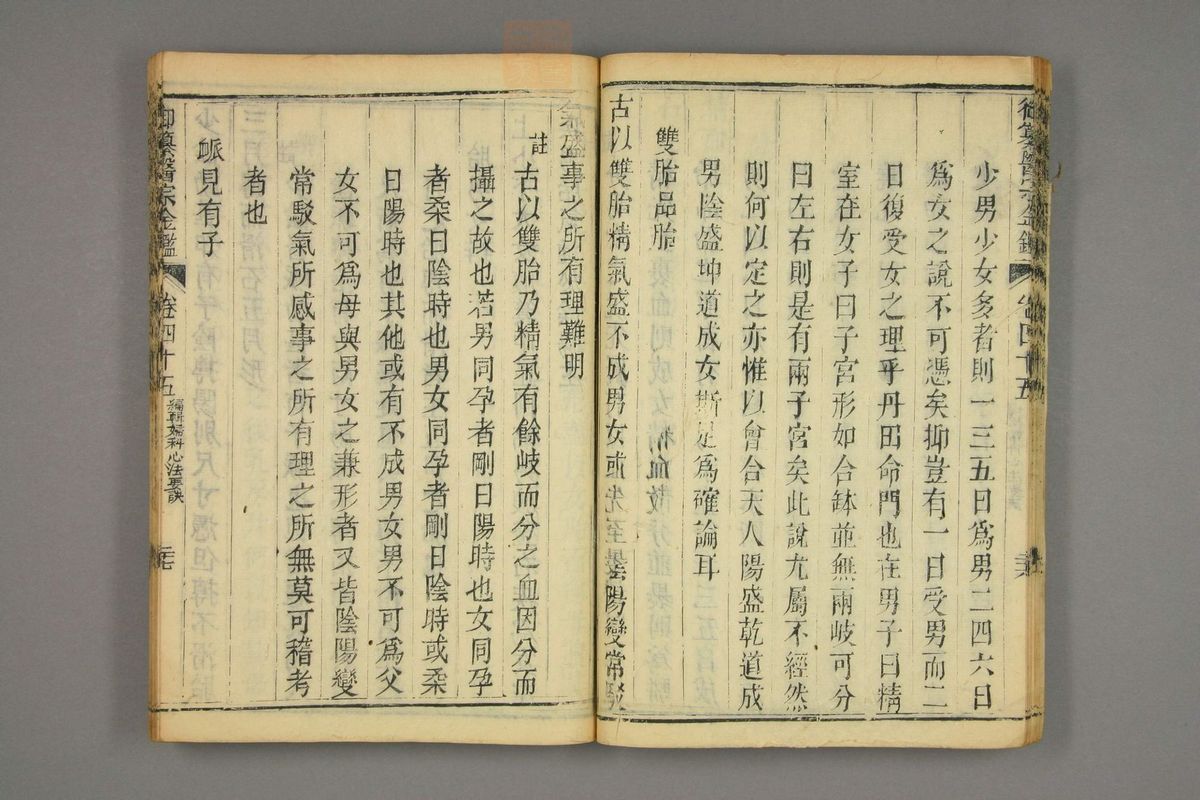 少男少女多者則一三五日爲男二四六日
爲女之說不可憑矣抑豈有一日受男而二
日復受女之理乎丹田命門也在男子曰精
室在女子曰子宮形如合缽並無兩岐可分
曰左右則是有兩子宮矣此說尤屬不經然
則何以定之亦惟以會合天人陽盛乾道成
男陰盛坤道成女斯足爲確論耳
雙胎品胎
古以雙胎精氣盛不成男女或 陽變常駁
氣盛事之所有理難明
註
古以雙胎乃精氣有餘岐而分之血因分而
攝之故也若男同孕者剛日陽時也女同孕
者柔日陰時也男女同孕者剛日陰時或柔
日陽時也其他或有不成男女男不可爲父
女不可爲母與男女之兼形者又皆陰陽變
常駁氣所感事之所有理之所無莫可稽考
者也
脈見有子
御纂醫宗金鑑
卷四十五
編輯婦科心法要訣